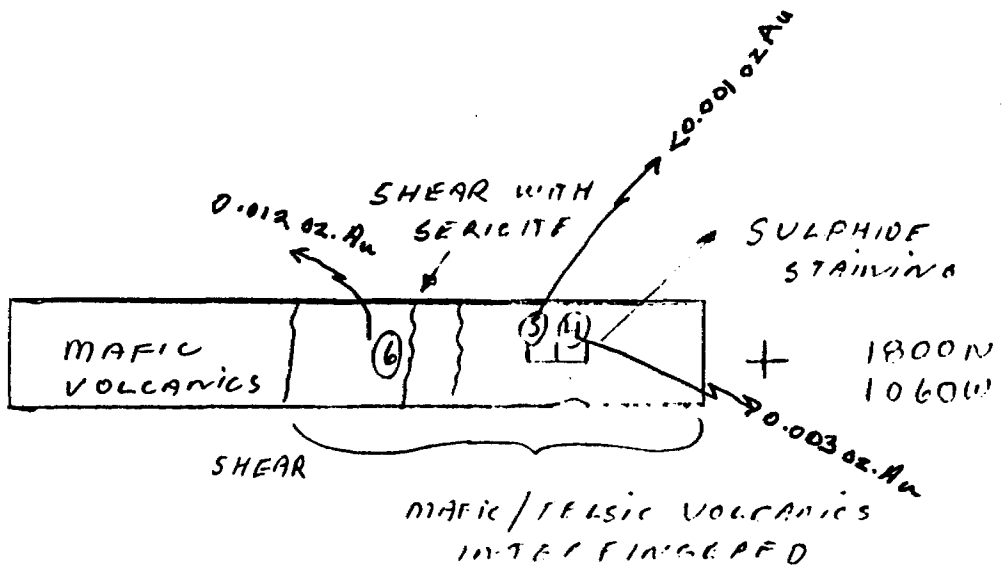 <0.001 oz Au
0.012 oz. Au
SHEAR WITH
SERICITE
SULPHIDE
STAINING
MAFIC
VOLCANICS
6
3
+
1800N
1060W
0.003 oz. Au
SHEAR
MAFIC/FELSIC VOLCANICS
INTERFINGERED